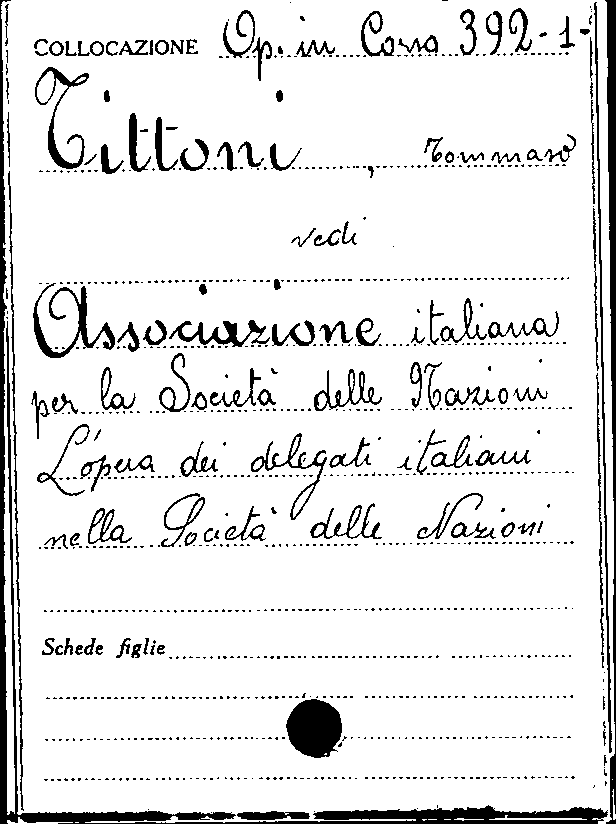 COLLOCAZIONE Op. in Corso 392-1-
Tittoni, Tommaso
vedi
Associazione italiana
per la Società delle Nazioni
L'opera dei delegati italiani
nella Società delle Nazioni
Schede figlie